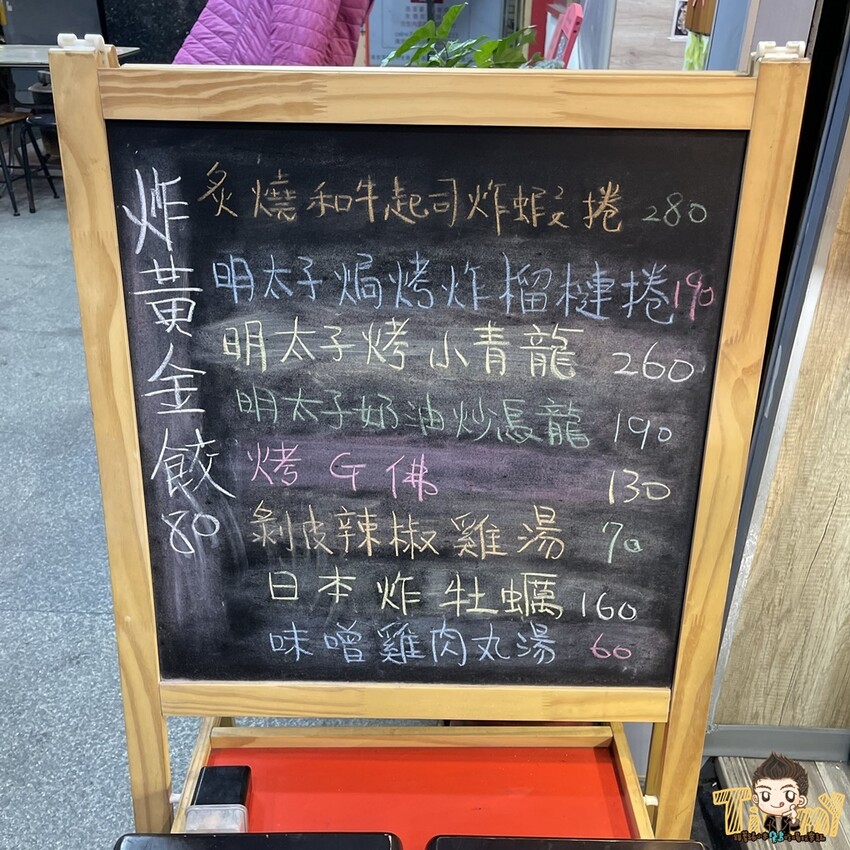 炸黃金餃 80
炙燒和牛起司炸蝦捲 280
明太子焗烤炸榴槤捲 190
明太子烤小青龍 260
明太子奶油炒烏龍 190
烤G佛 130
剝皮辣椒雞湯 70
日本炸牡蠣 160
味噌雞肉丸湯 60